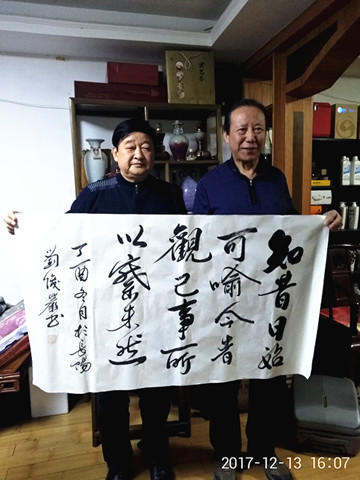 知昔日始
可喻今者
觀已事所
以察未然
丁酉冬月於長陽
劉俊書
2017-12-13 16:07